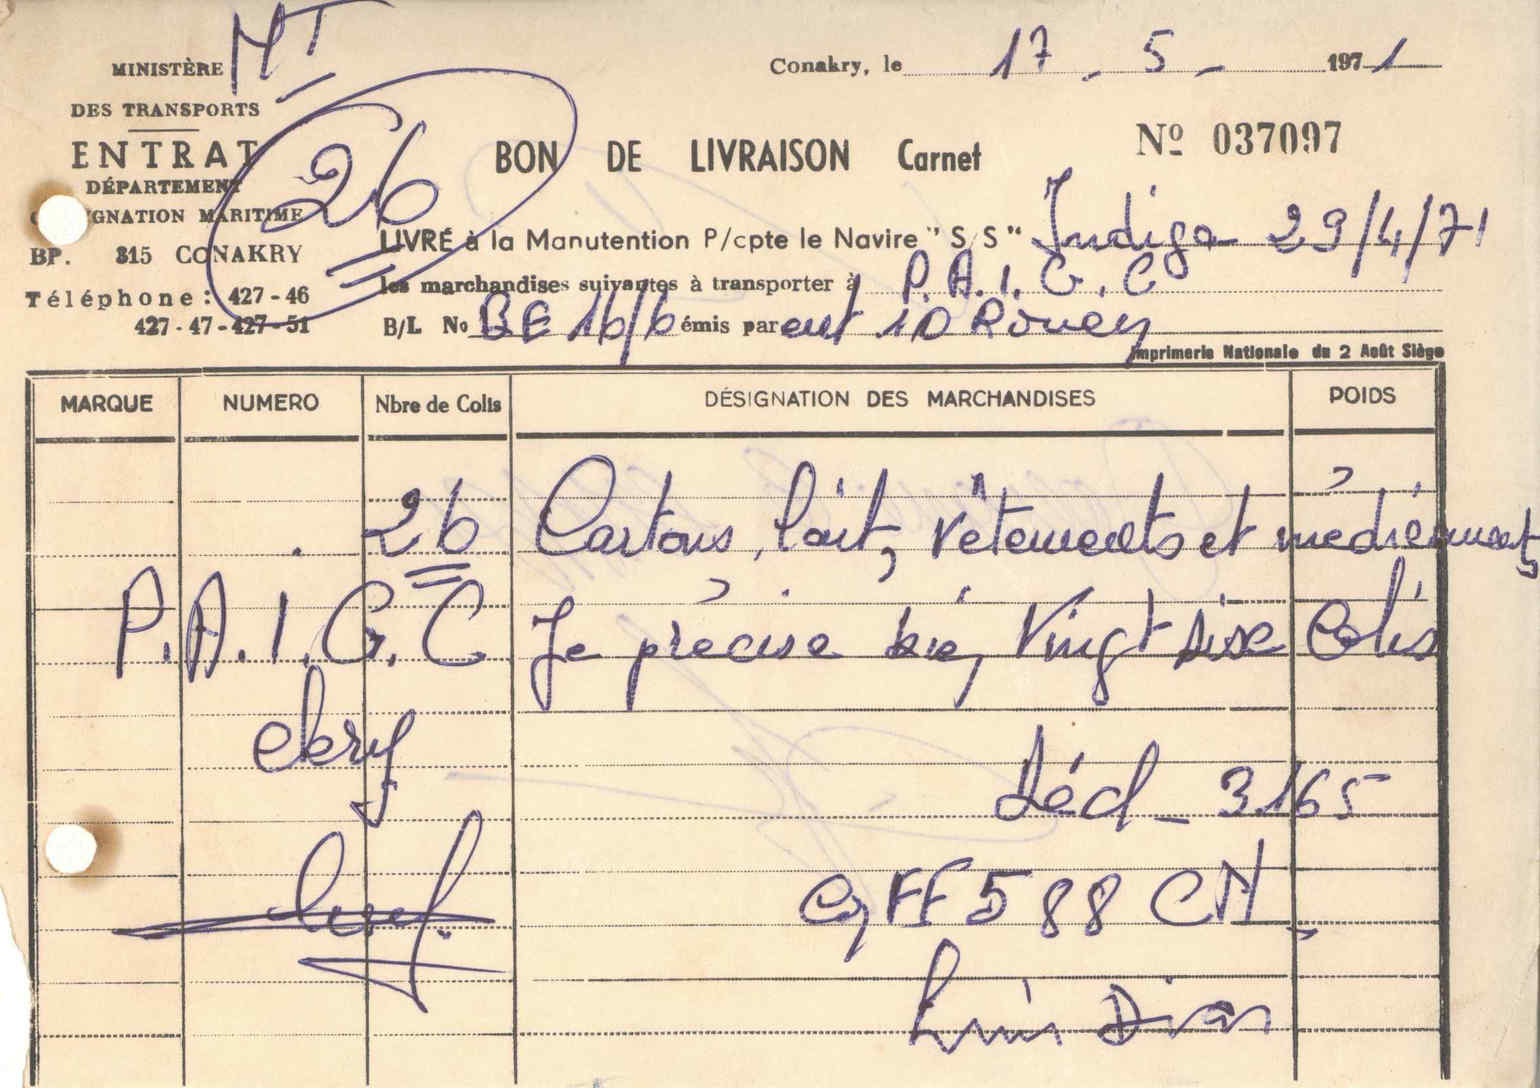 MT
MINISTÈRE
DES TRANSPORTS
ENTRAT
DÉPARTEMENT
GNATION MARITIME
BP. 315 CONAKRY
Téléphone: 427-46
427-47-427-51
26
Conakry, le 17 - 5 - 1971
BON DE LIVRAISON Carnet
Nº 037097
LIVRÉ à la Manutention P/cpte le Navire "S/S" Indiga 29/4/71
les marchandises suivantes à transporter à P.A.I.G.C
B/L No BE 16/6 émis par ent 10 Rouen
Imprimerie Nationale du 2 Août Siège
MARQUE NUMERO Nbre de Colis DÉSIGNATION DES MARCHANDISES POIDS
26 Cartons, lait, vêtements et médicaments
P.A.I.G.C Je précise bien Vingt sixe Colis
ckry
Décl - 3165
FF 588 CN
Luis Dias